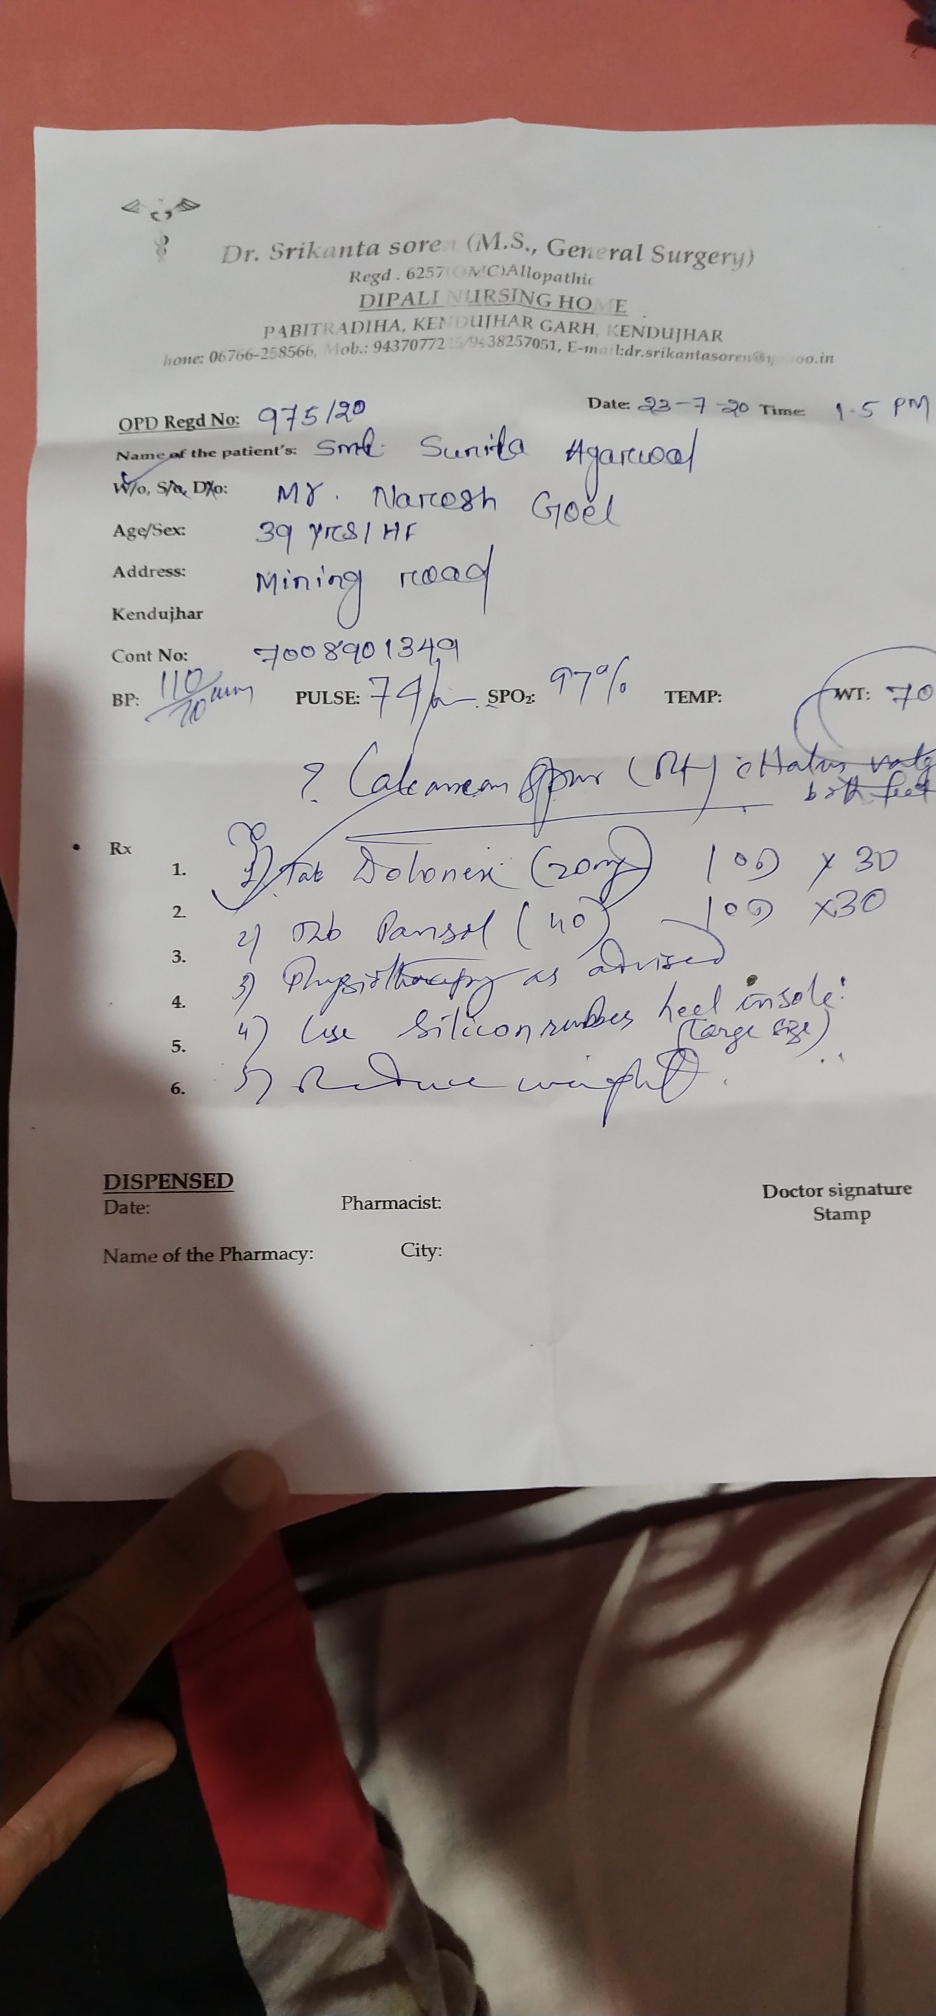 Dr. Srikanta soren (M.S., General Surgery)
Regd . 6257(OMC)Allopathic
DIPALI NURSING HOME
PABITRADIHA, KENDUJHAR GARH, KENDUJHAR
hone: 06766-258566, Mob.: 94370772 /9438257051, E-mail:dr.srikantasoren@ oo.in
OPD Regd No: 975/20 Date: 23-7-20 Time: 1.5 PM
Name of the patient's: Smt. Sunita Agarwal
W/o, S/o, D/o: Mr. Nareesh Goel
Age/Sex: 39 yrs / HF
Address: Mining road
Kendujhar
Cont No: 7008901349
BP: 110/70 mm PULSE: 74/ SPO2: 97% TEMP: WT: 70
? Calcanean Spur (Rt) c Halux
both feet
Rx
1. 1) Tab Dolonex (20mg) 1 OD x 30
2. 2) Tab Pansol (40) 1 OD x30
3. 3) Physiotherapy as advised
4. 4) Use Silicon rubber heel insole.
5. (Large size)
6. 5) Reduce weight.
DISPENSED
Date: Pharmacist: Doctor signature
Stamp
Name of the Pharmacy: City: